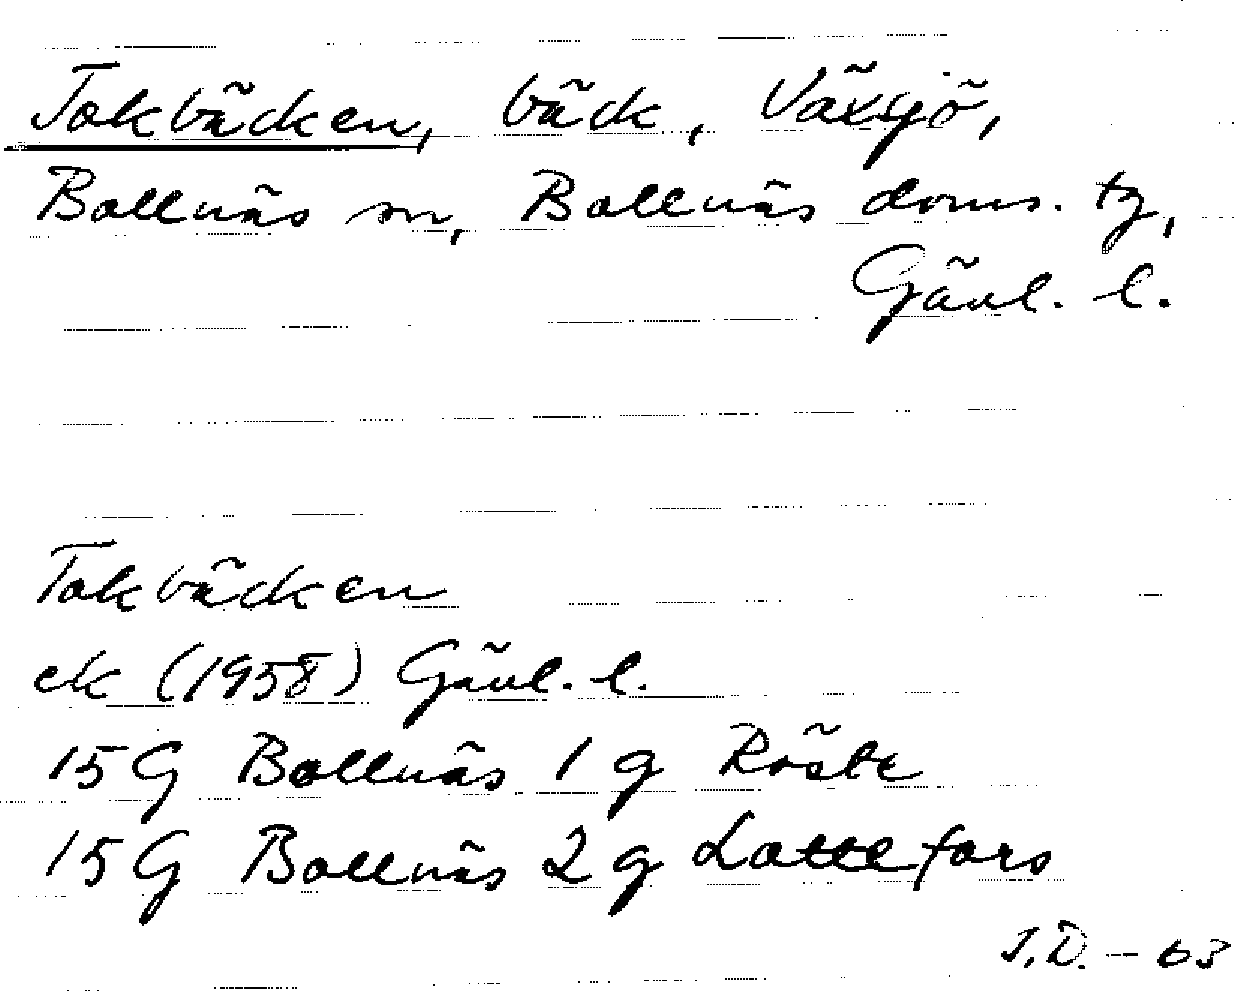 Tokbäcken, bäck, Växsjö,
Bollnäs sn, Bollnäs doms. tg,
Gävl. l.
Tokbäcken
ek (1958) Gävl. l.
15G Bollnäs 1 g Röste
15G Bollnäs 2 g Lottefors
J.D. - 63